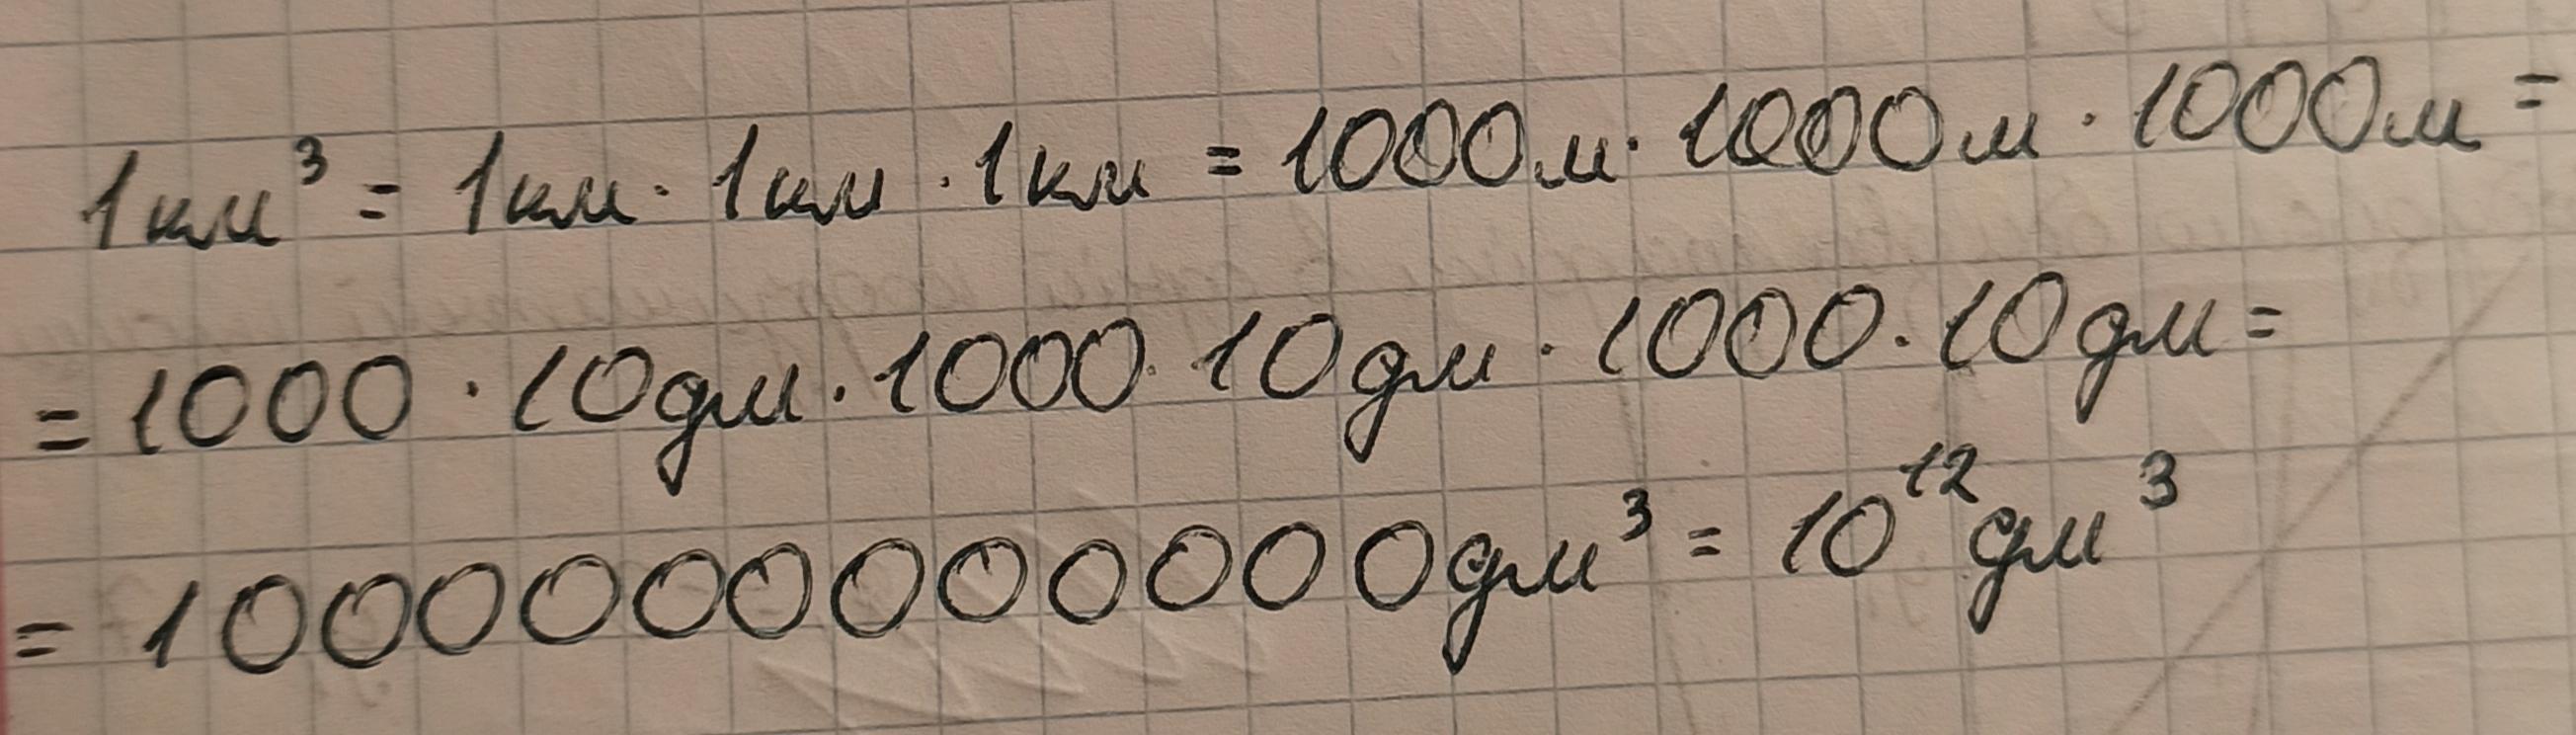 1км³ = 1км · 1км · 1км = 1000м · 1000м · 1000м =
= 1000 · 10дм · 1000 · 10дм · 1000 · 10дм =
= 1000000000000дм³ = 10¹² дм³